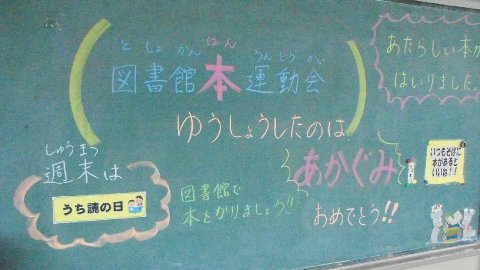 としょかんほんうんどうかい
図書館本運動会
ゆうしょうしたのは
あかぐみ
おめでとう!!
あたらしい本が
はいりました。
しゅうまつ
週末は
うち読の日
図書館で
本をかりましょう!!
いつもそばに
本があると
いいね!!